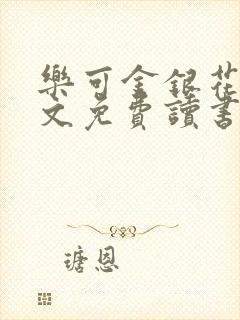 樂可金銀花
文免費讀書
瑭恩